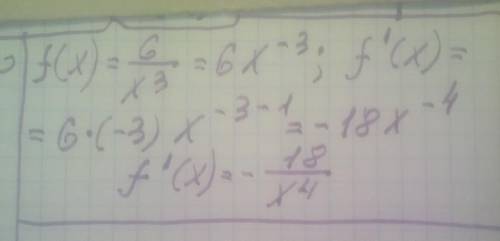 f(x) = 6/x³ = 6x⁻³; f'(x) =
= 6·(-3) x⁻³⁻¹ = -18x⁻⁴
f'(x) = - 18/x⁴